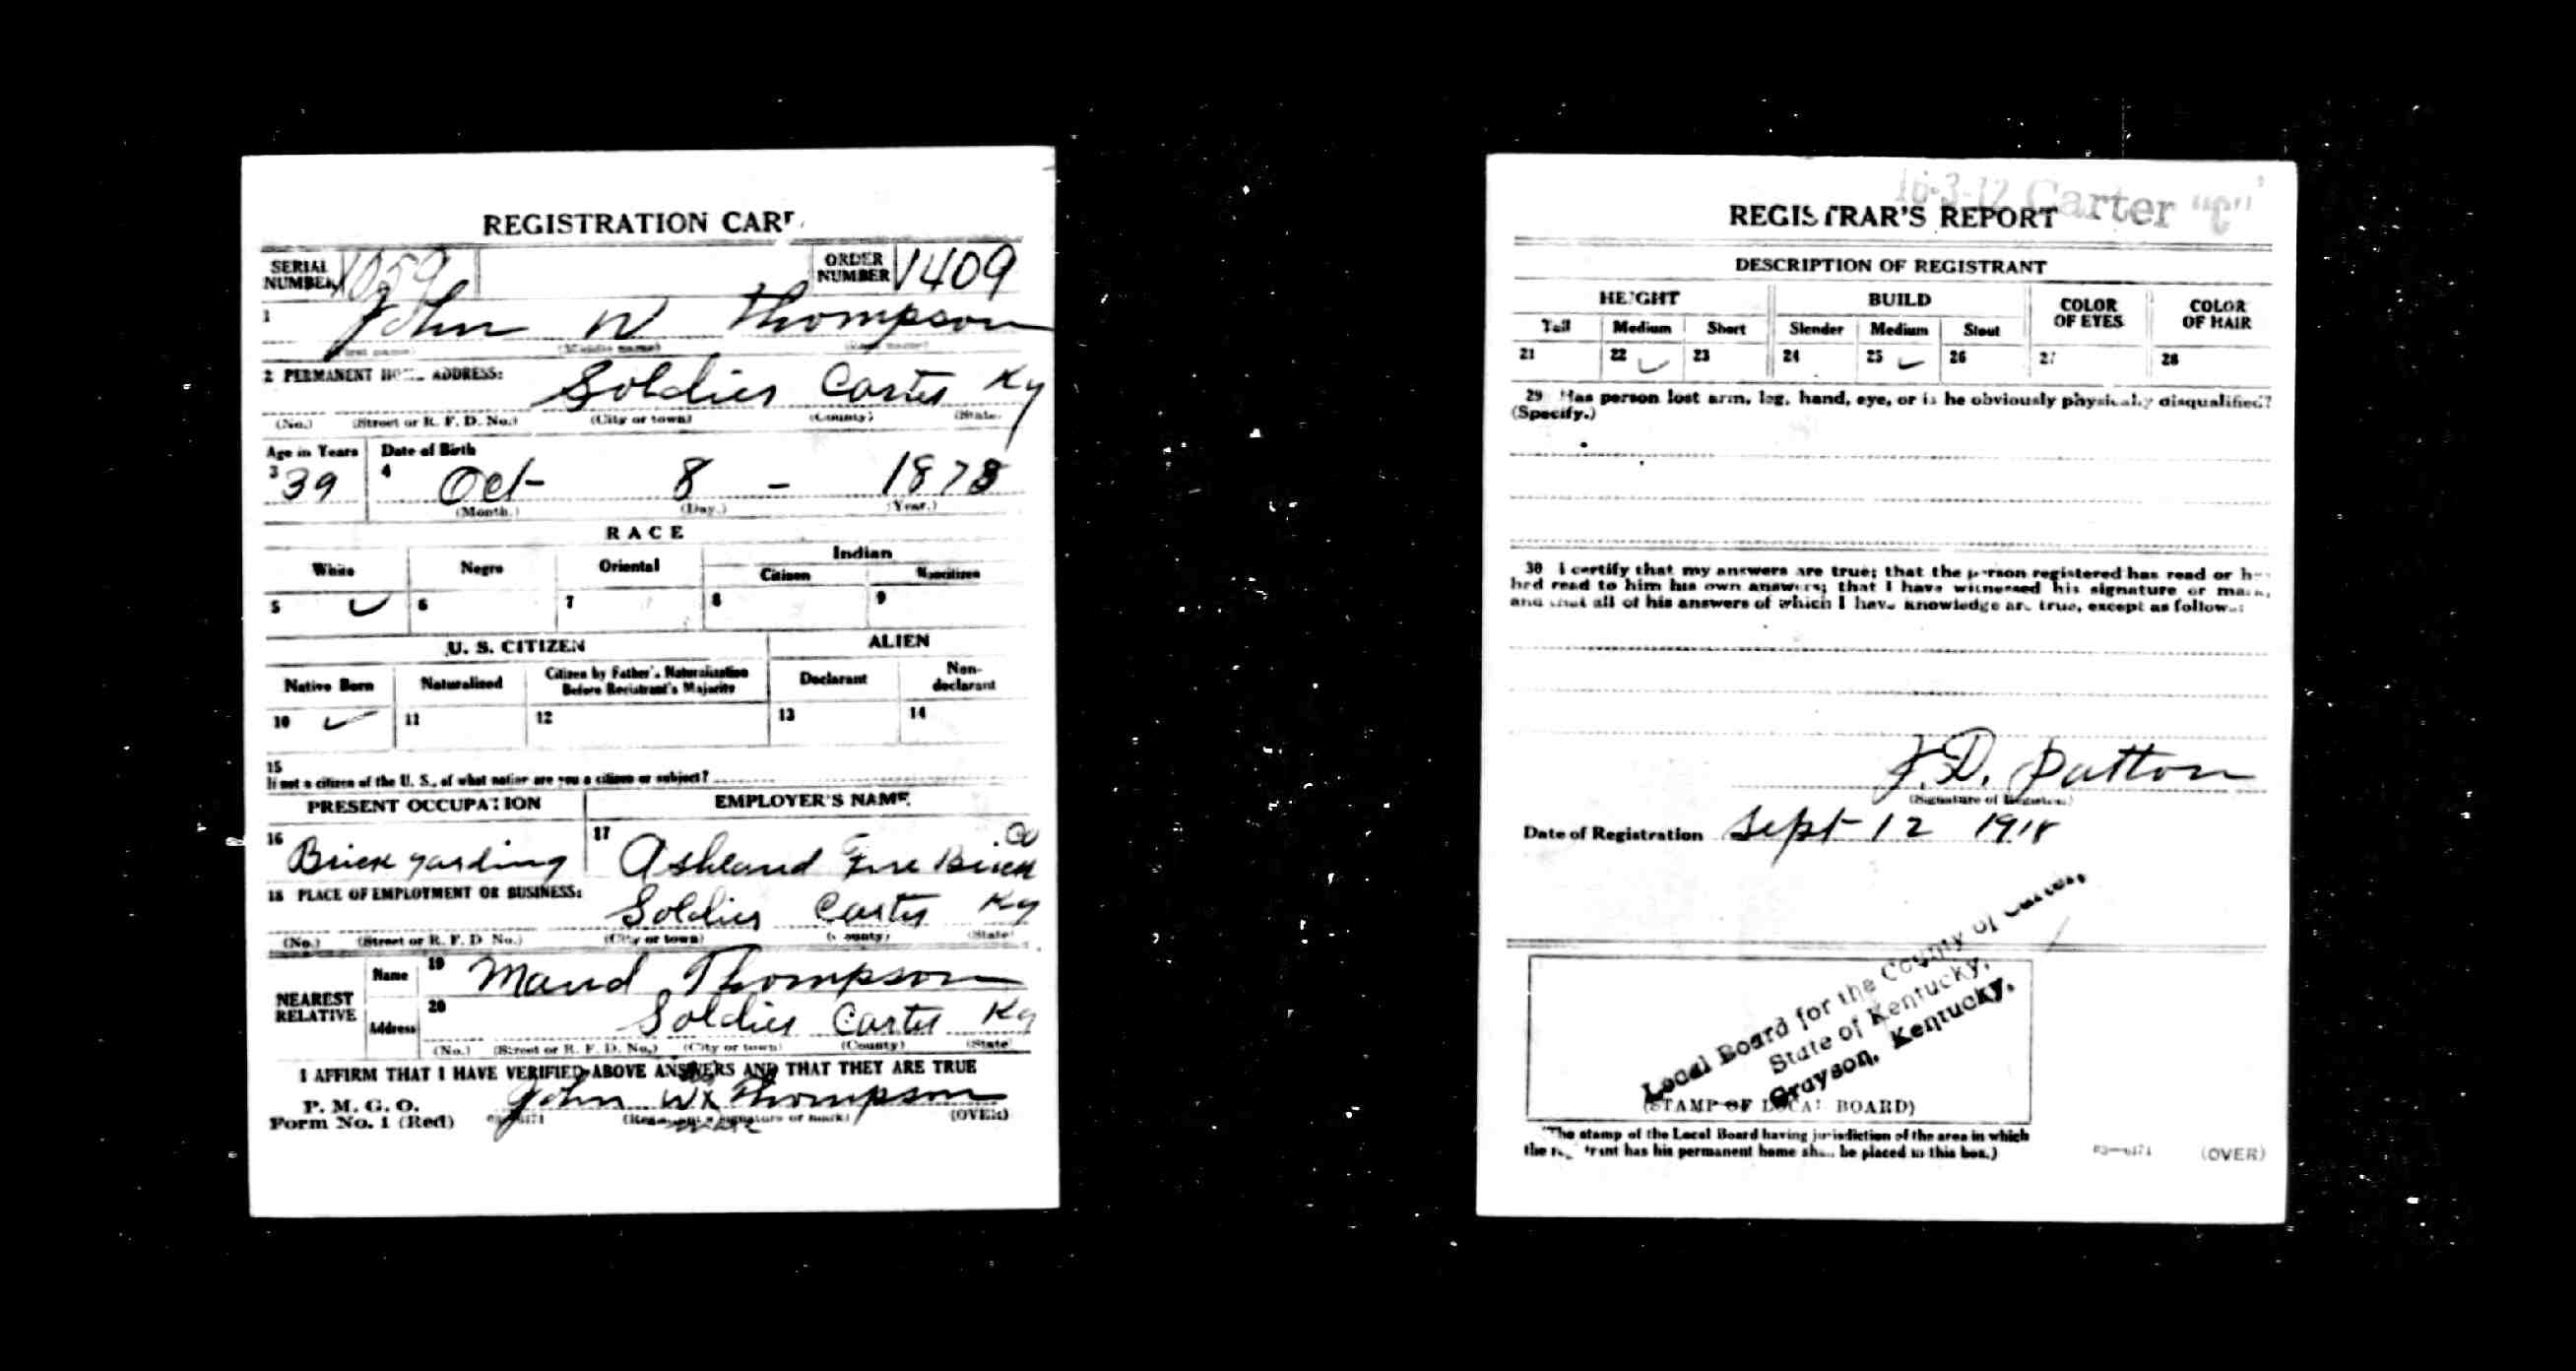 REGISTRATION CARD
SERIAL NUMBER 1059 ORDER NUMBER 1409
1 John W Thompson
(First name) (Middle name) (Last name)
2 PERMANENT HOME ADDRESS:
Soldier Carter Ky
(No.) (Street or R. F. D. No.) (City or town) (County) (State)
Age in Years Date of Birth
3 39 4 Oct - 8 - 1878
(Month.) (Day.) (Year.)
RACE
White Negro Oriental Indian
Citizen Noncitizen
5 ✓ 6 7 8 9
U. S. CITIZEN ALIEN
Native Born Naturalized Citizen by Father's Naturalization Before Registrant's Majority Declarant Non-declarant
10 ✓ 11 12 13 14
15
If not a citizen of the U. S., of what nation are you a citizen or subject?
PRESENT OCCUPATION EMPLOYER'S NAME
16 Brick yarding 17 Ashland Fire Brick Co
18 PLACE OF EMPLOYMENT OR BUSINESS:
Soldier Carter Ky
(No.) (Street or R. F. D. No.) (City or town) (County) (State)
NEAREST RELATIVE
Name 19 Maud Thompson
Address 20 Soldier Carter Ky
(No.) (Street or R. F. D. No.) (City or town) (County) (State)
I AFFIRM THAT I HAVE VERIFIED ABOVE ANSWERS AND THAT THEY ARE TRUE
his
P. M. G. O.
Form No. 1 (Red) John W x Thompson
(Registrant's signature or mark) (OVER)
mark
Carter "C"
REGISTRAR'S REPORT
DESCRIPTION OF REGISTRANT
HEIGHT BUILD COLOR OF EYES COLOR OF HAIR
Tall Medium Short Slender Medium Stout
21 22 ✓ 23 24 25 ✓ 26 27 28
29 Has person lost arm, leg, hand, eye, or is he obviously physically disqualified?
(Specify.)
30 I certify that my answers are true; that the person registered has read or has
had read to him his own answers; that I have witnessed his signature or mark,
and that all of his answers of which I have knowledge are true, except as follows:
J. D. Patton
(Signature of Registrar)
Date of Registration Sept 12 1918
Local Board for the County of Carter,
State of Kentucky,
Grayson, Kentucky.
(STAMP OF LOCAL BOARD)
(The stamp of the Local Board having jurisdiction of the area in which
the registrant has his permanent home shall be placed in this box.)
03—6171 (OVER)